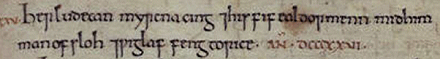 Her ludecan myrcna cing ⁊ his fif ealdormenn mid him
man ofsloh ⁊ wiglaf feng to rice. AÑ. DCCCXXVI.